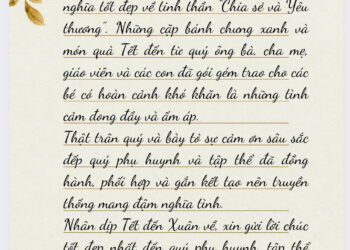 nghĩa tốt đẹp về tinh thần "Chia sẻ và Yêu
thương". Những cặp bánh chưng xanh và
món quà Tết đến từ quý ông bà, cha mẹ,
giáo viên và các con đã gói gém trao cho các
bé có hoàn cảnh khó khăn là những tình
cảm đong đầy và ấm áp.
Thật trân quý và bày tỏ sự cảm ơn sâu sắc
đến quý phụ huynh và tập thể đã đồng
hành, phối hợp và gắn kết tạo nên truyền
thống mang đậm nghĩa tình.
Nhân dịp Tết đến Xuân về, xin gửi lời chúc
tốt đẹp nhất đến quý phụ huynh, tập thể